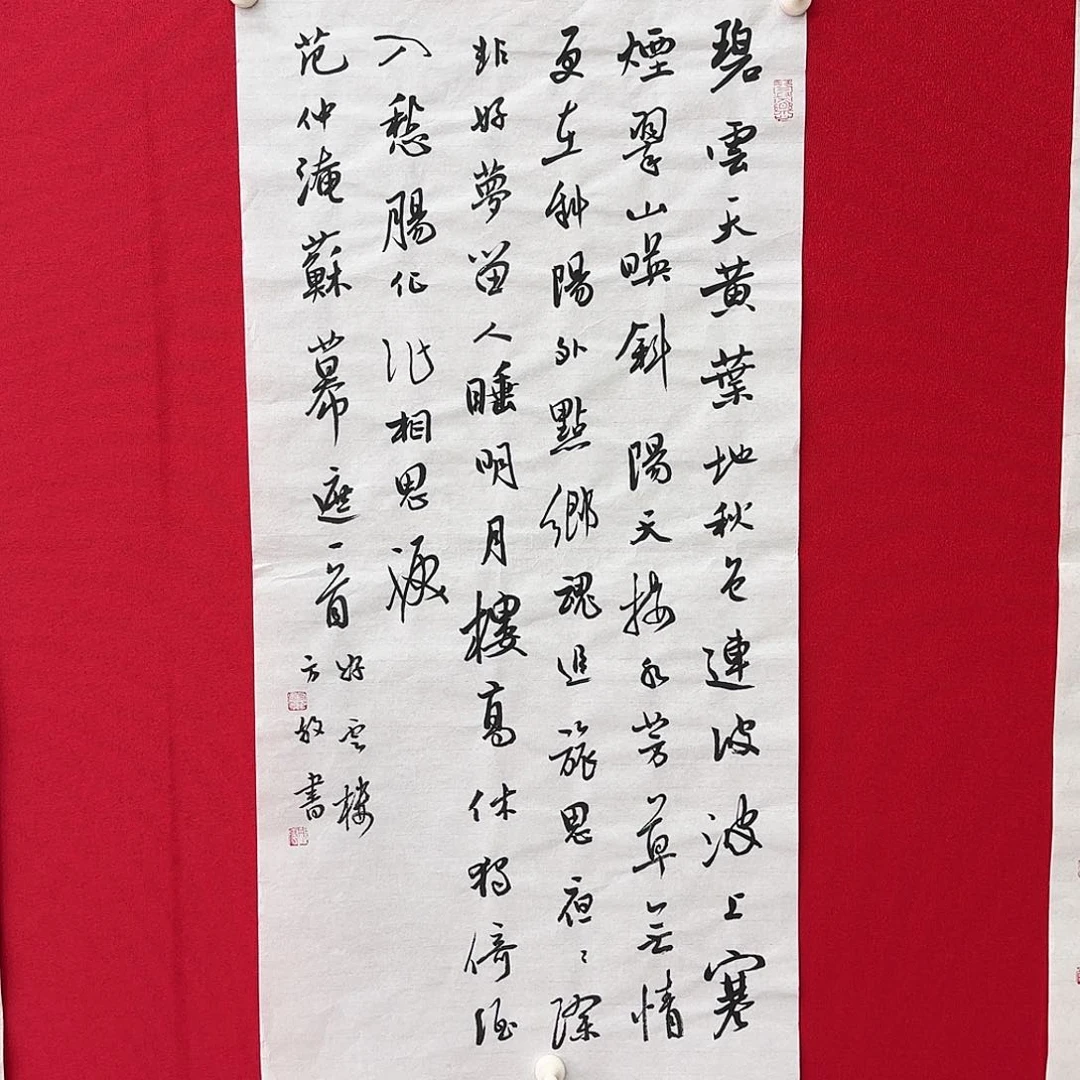 碧雲天黃葉地秋色連波波上寒
煙翠山暎斜陽天接水芳草無情
更在斜陽外點鄉魂追旅思夜〻除
非好夢留人睡明月樓高休獨倚酒
入愁腸化作相思淚
范仲淹蘇幕遮一首
好雲樓
方敬書